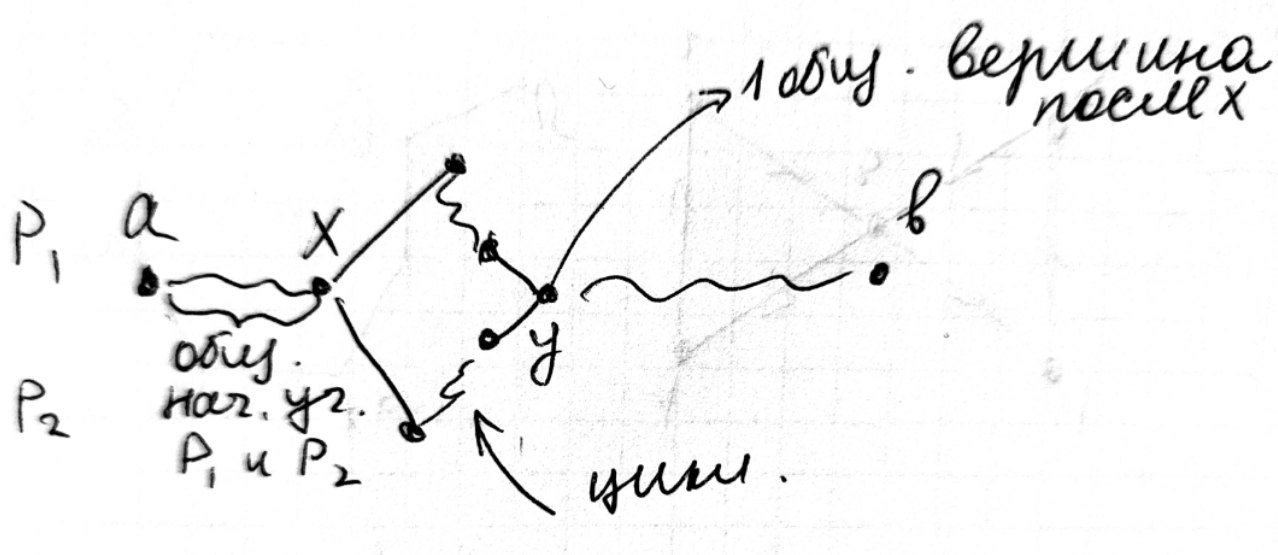 1 общ. вершина
после x
P₁ a x в
y
общ.
нач. уч.
P₁ и P₂
P₂
цикл.